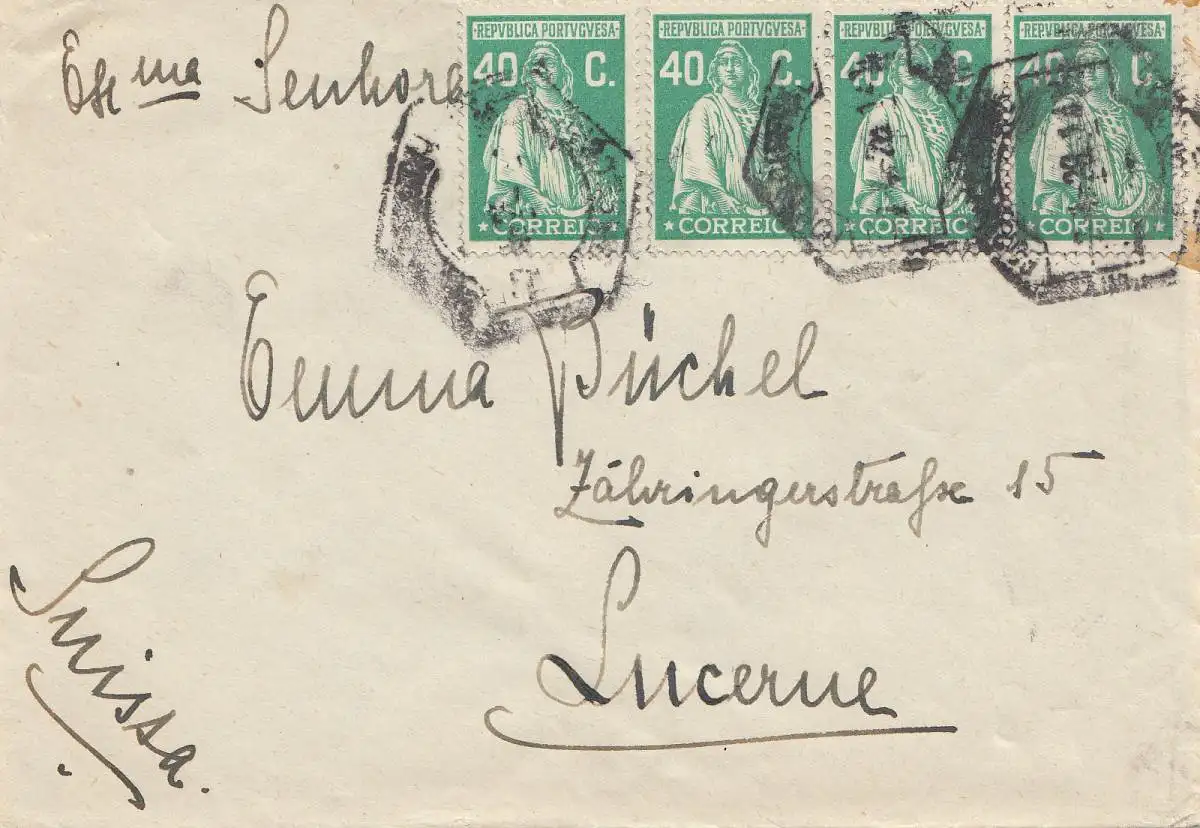 Exma Senhora
REPVBLICA PORTVGVESA REPVBLICA PORTVGVESA REPVBLICA PORTVGVESA REPVBLICA PORTVGVESA
40 C. 40 C. 40 C. 40 C.
CORREIO CORREIO CORREIO CORREIO
Emma Büchel
Zähringerstraße 15
Lucerne
Suissa.